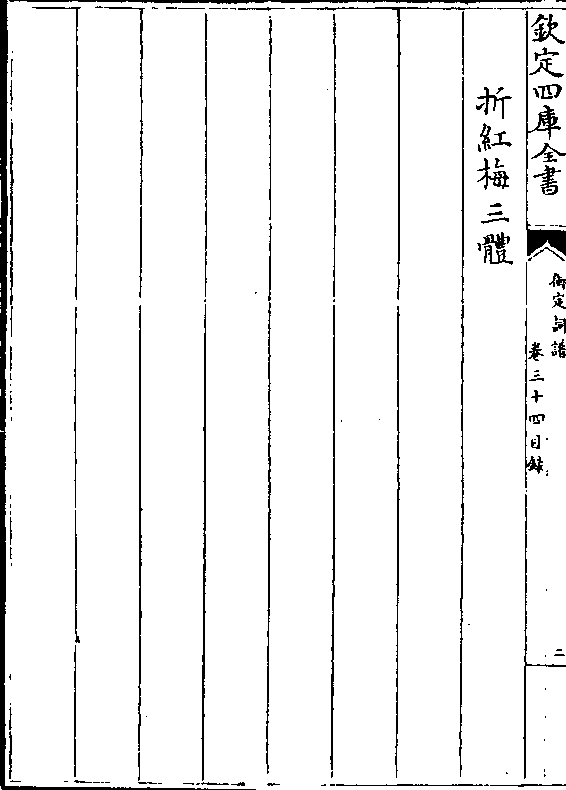 欽定四庫全書
御定詞譜
卷三十四目錄
二
折紅梅三體